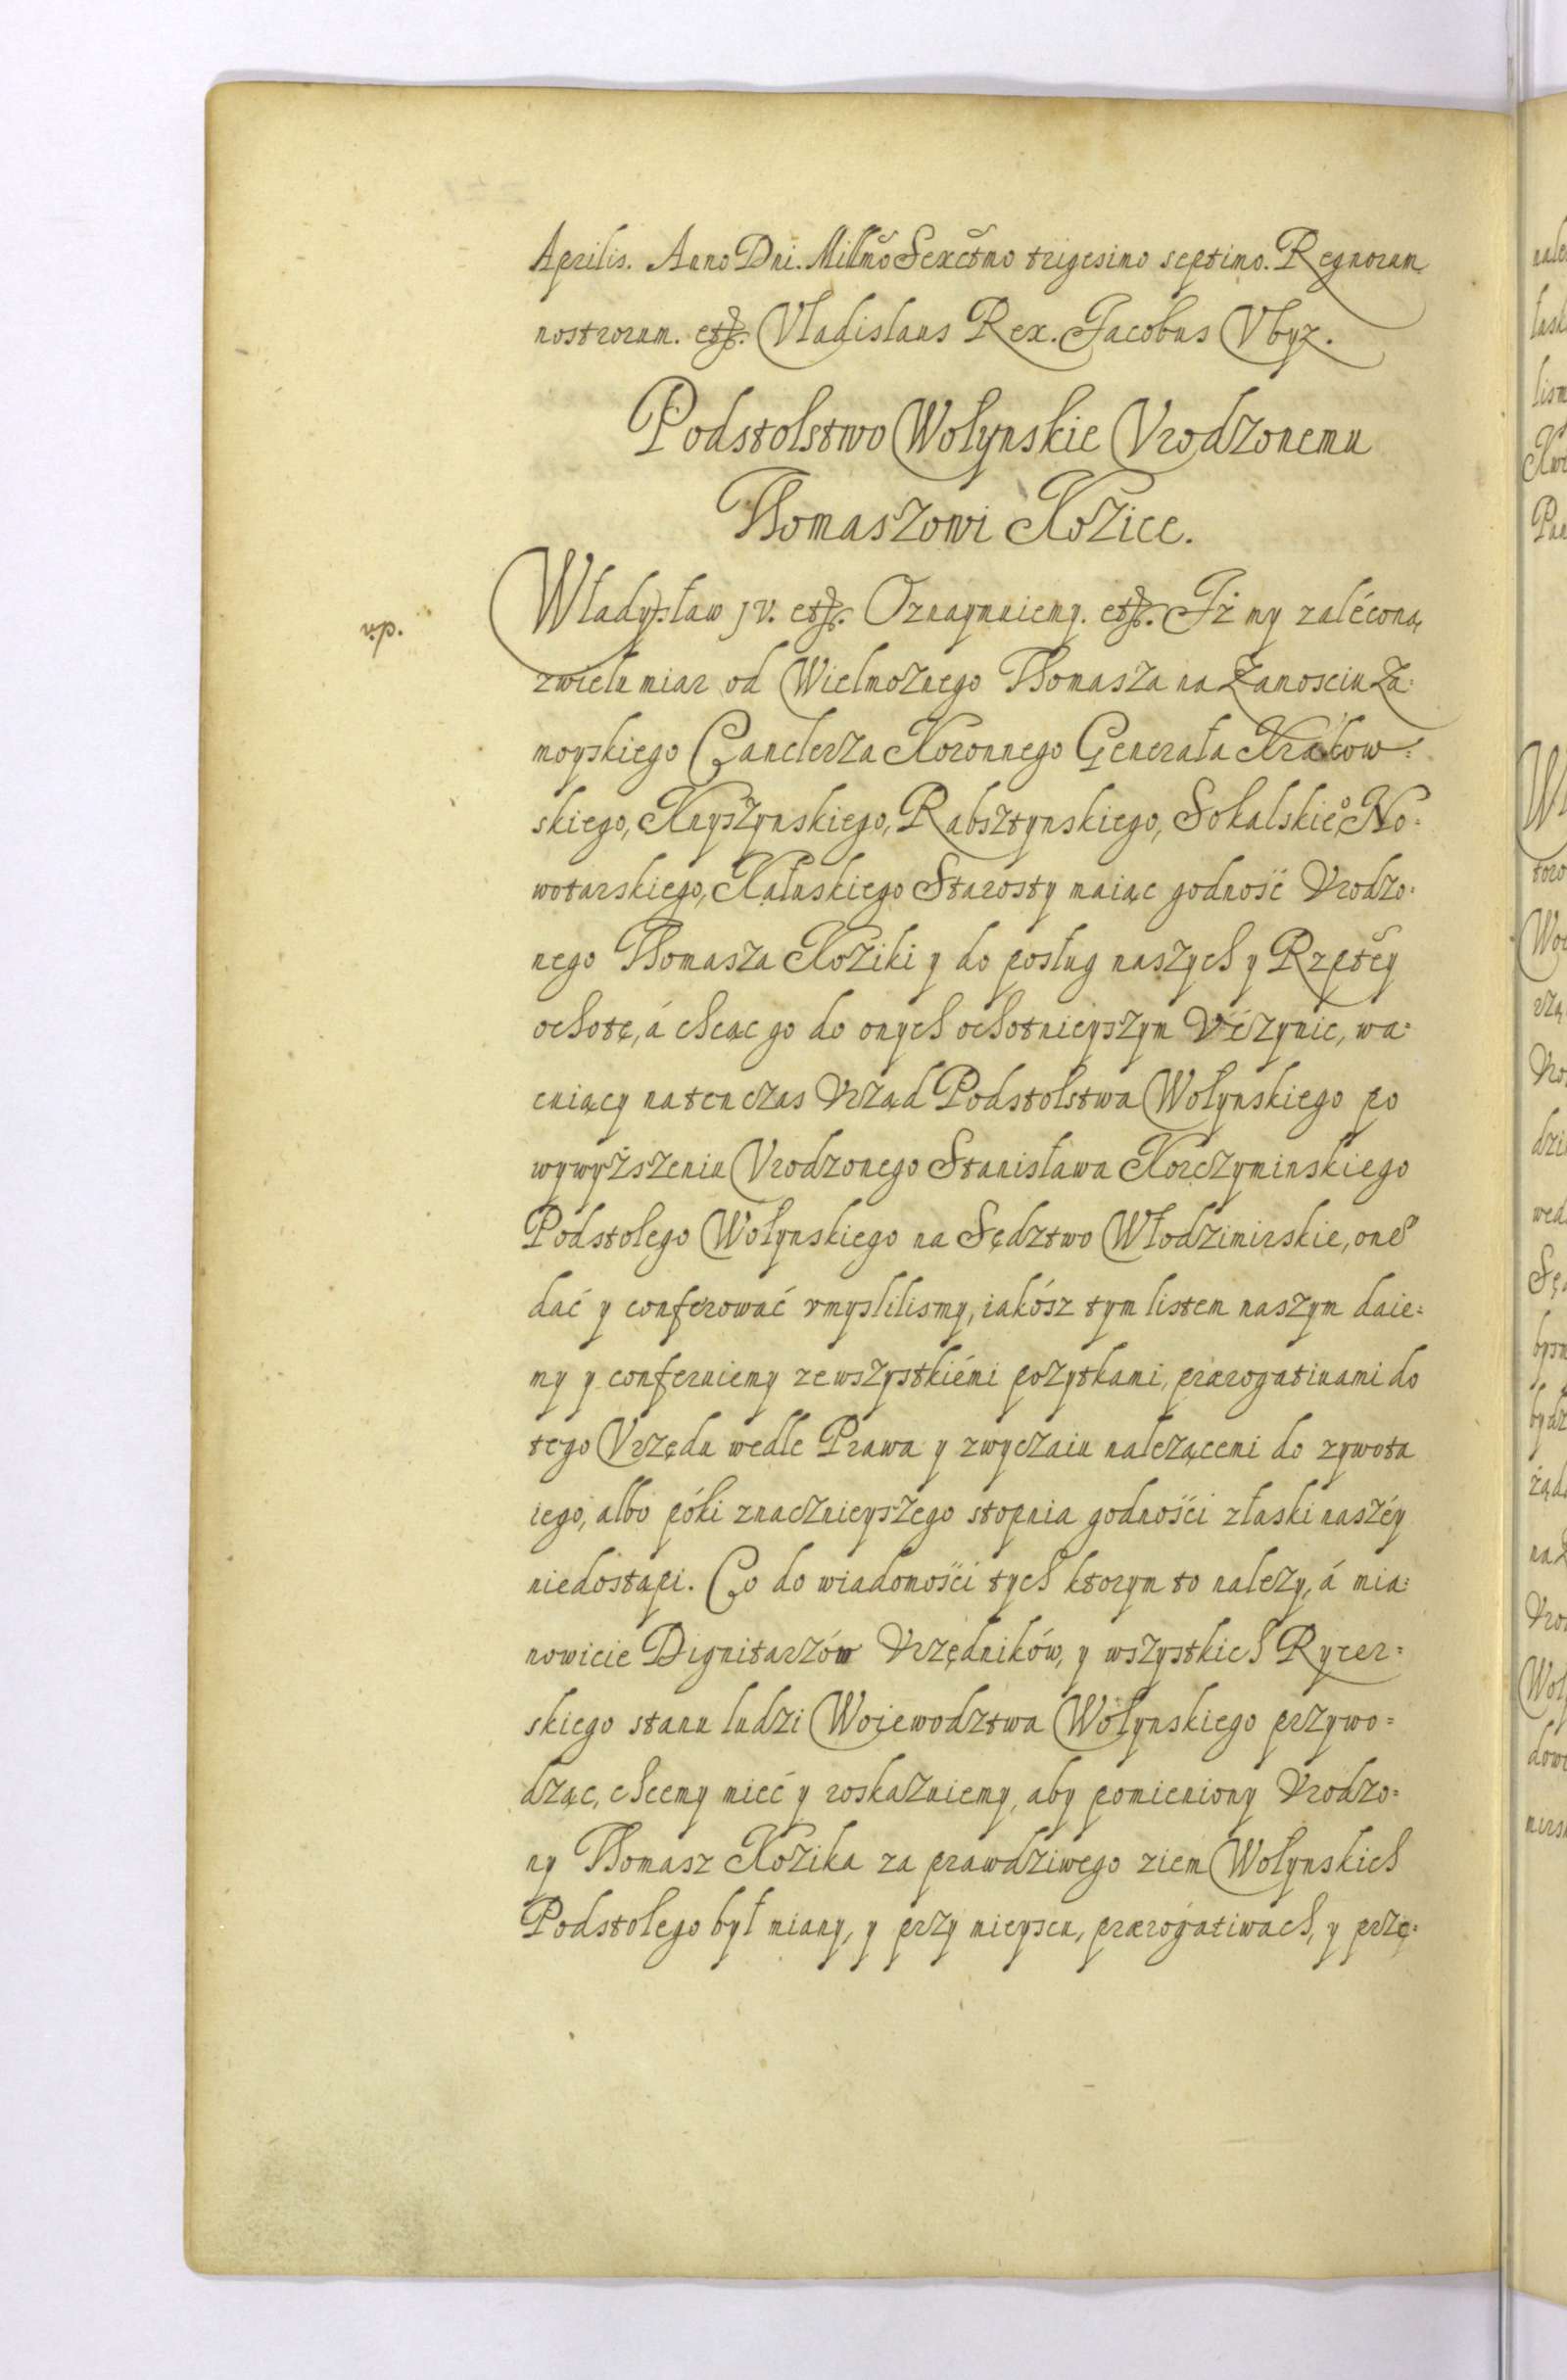 Aprilis. Anno Dni. Millmo Sexctmo trigesimo septimo. Regnorum
nostrorum. etc. Vladislaus Rex. Jacobus Vbyz.
Podstolstwo Wołynskie Vrodzonemu
Thomaszowi Kozice.
Władysław jv. etc. Oznaymuiemy. etc. Iż my zaléconą
zwielu miar od Wielmoznego Thomasza na Zamosciu Za:
moyskiego Canclerza Koronnego Generała Krakow:
skiego, Knyszynskiego, Rabsztynskiego, Sokalskieo, No:
wotarskiego, Kałuskiego Starosty maiąc godność Vrodzo:
nego Thomasza Koziki y do posług naszych y Rzptey
ochotę, á chcąc go do onych ochotnieyszym Vczynic, wa:
cuiący natenczas Vrząd Podstolstwa Wołynskiego po
wywyższeniu Vrodzonego Stanisława Korczyminskiego
Podstolego Wołynskiego na Sędztwo Włodzimirskie, one
dać y conferować vmyslilismy, iakósz tym listem naszym daie:
my y conferuiemy zewszystkiémi pozytkami, prærogatiuami do
tego Vrzędu wedle Prawa y zwyczaiu nalezącemi do zywota
iego, albo póki znacznieyszego stopnia godności złaski naszéy
niedostąpi. Co do wiadomości tych ktorym to nalezy, á mia:
nowicie Dignitarzów Vrzędników, y wszystkich Rycer:
skiego stanu ludzi Woiewodztwa Wołynskiego przywo:
dząc, chcemy mieć y roskazuiemy, aby pomieniony Vrodzo:
ny Thomasz Kozika za prawdziwego ziem Wołynskich
Podstolego był miany, y przy mieyscu, prærogatiwach, y prze: